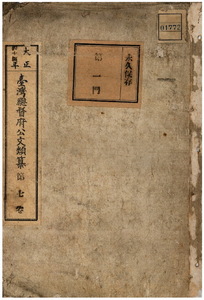 01772
永久保存
第一門
大正
臺灣總督府公文類纂 第七卷